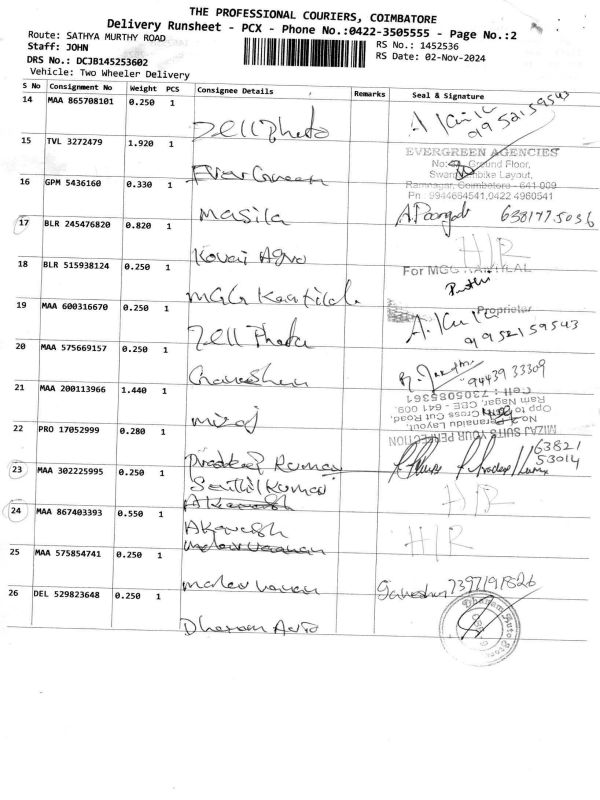 THE PROFESSIONAL COURIERS, COIMBATORE
Delivery Runsheet - PCX - Phone No.:0422-3505555 - Page No.:2
Route: SATHYA MURTHY ROAD
Staff: JOHN
RS No.: 1452536
DRS No.: DCJB145253602
RS Date: 02-Nov-2024
Vehicle: Two Wheeler Delivery
S No Consignment No Weight PCS Consignee Details Remarks Seal & Signature
14 MAA 865708101 0.250 1
Zell Photo
99521 59543
15 TVL 3272479 1.920 1
Ever Green
EVERGREEN AGENCIES
Ground Floor,
Layout,
Ramnagar, Coimbatore - 641 009
Pn : 9944654541,0422 4960541
16 GPM 5436160 0.330 1
Masila
638177 5036
17 BLR 245476820 0.820 1
Kovai Agro
H/R
18 BLR 515938124 0.250 1
MGG Kantilal
For MGG KANTILAL
Proprietor
19 MAA 600316670 0.250 1
Zell Photo
99521 59543
20 MAA 575669157 0.250 1
Ganeshen
94439 33309
21 MAA 200113966 1.440 1
Mizaj
Cell : 7305085361
Ram Nagar, CBE - 641 009.
Opp to Cross Cut Road,
Layout,
MIZAJ SUITS YOUR PERFECTION
22 PRO 17052999 0.280 1
Pradeep Kumar
63821
53014
23 MAA 302225995 0.250 1
Senthil Kumar
H/R
24 MAA 867403393 0.550 1
Akavash
H/R
25 MAA 575854741 0.250 1
Malar vanan
7397191826
26 DEL 529823648 0.250 1
Dharam Auto
Dharam Auto Store